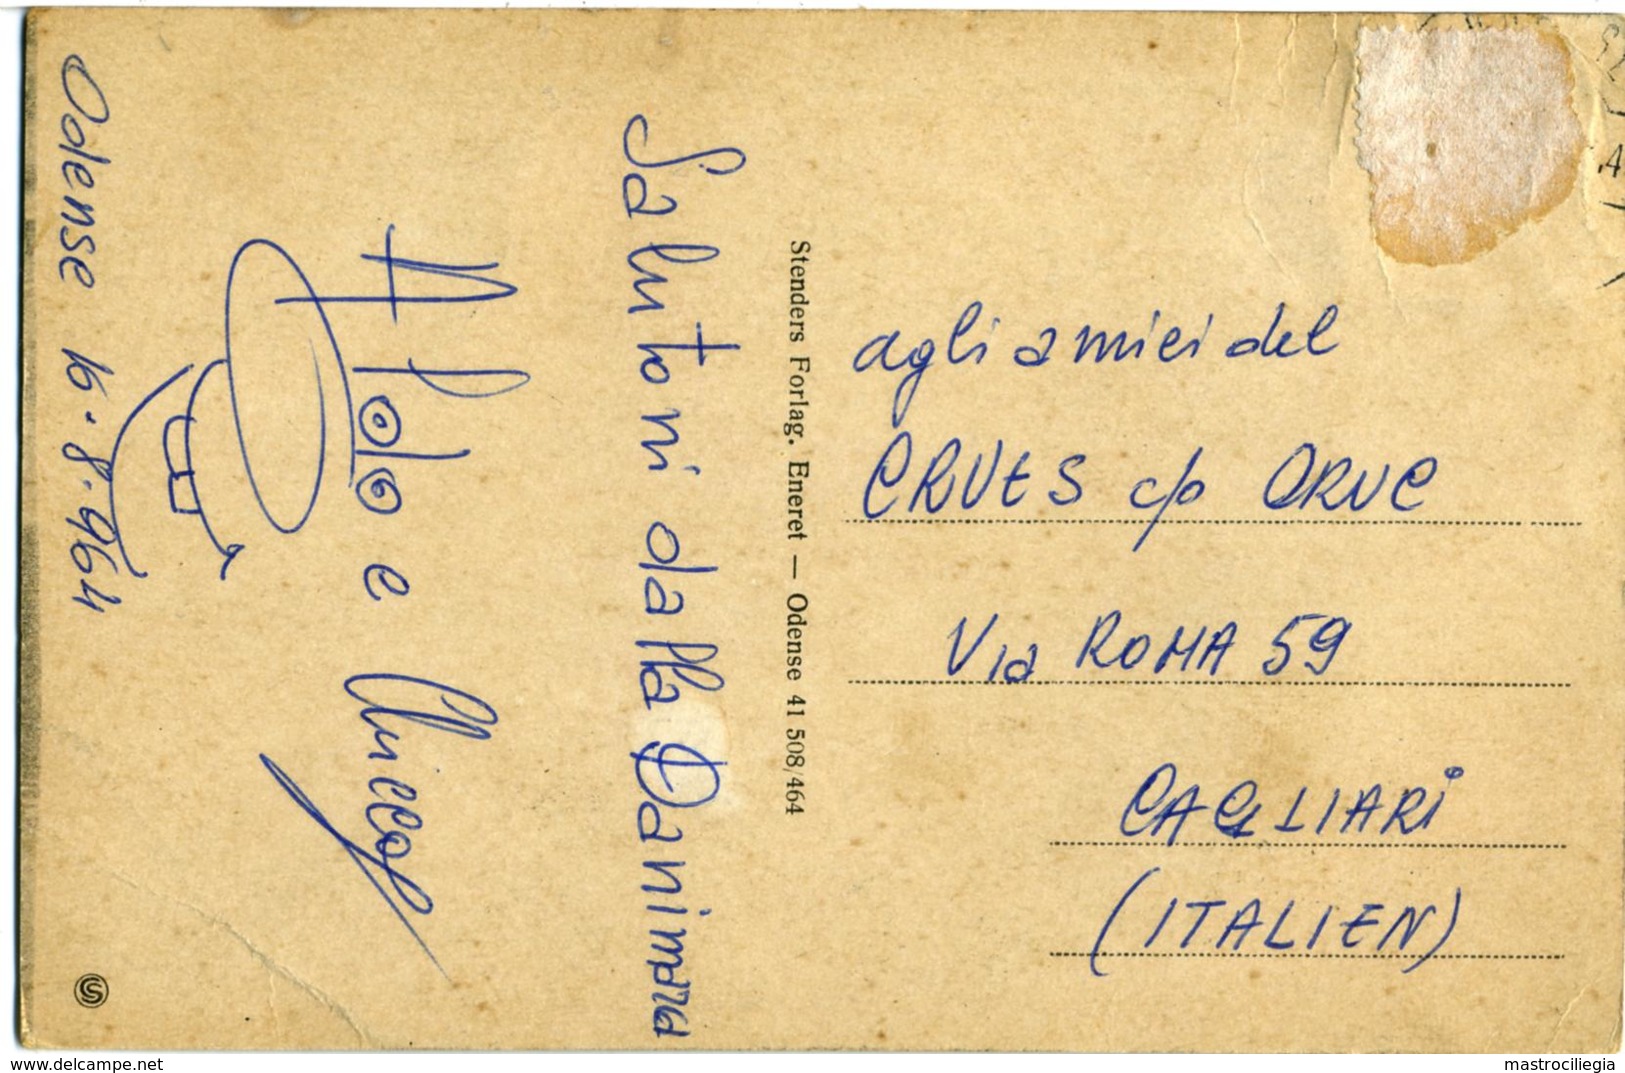 Odense 16.8.964
Salutoni dalla Danimarca
Stenders Forlag. Eneret — Odense 41 508/464
agli amici del
CRUES c/o ORUC
Via ROMA 59
CAGLIARI
(ITALIEN)
delcampe.net
mastrociliegia